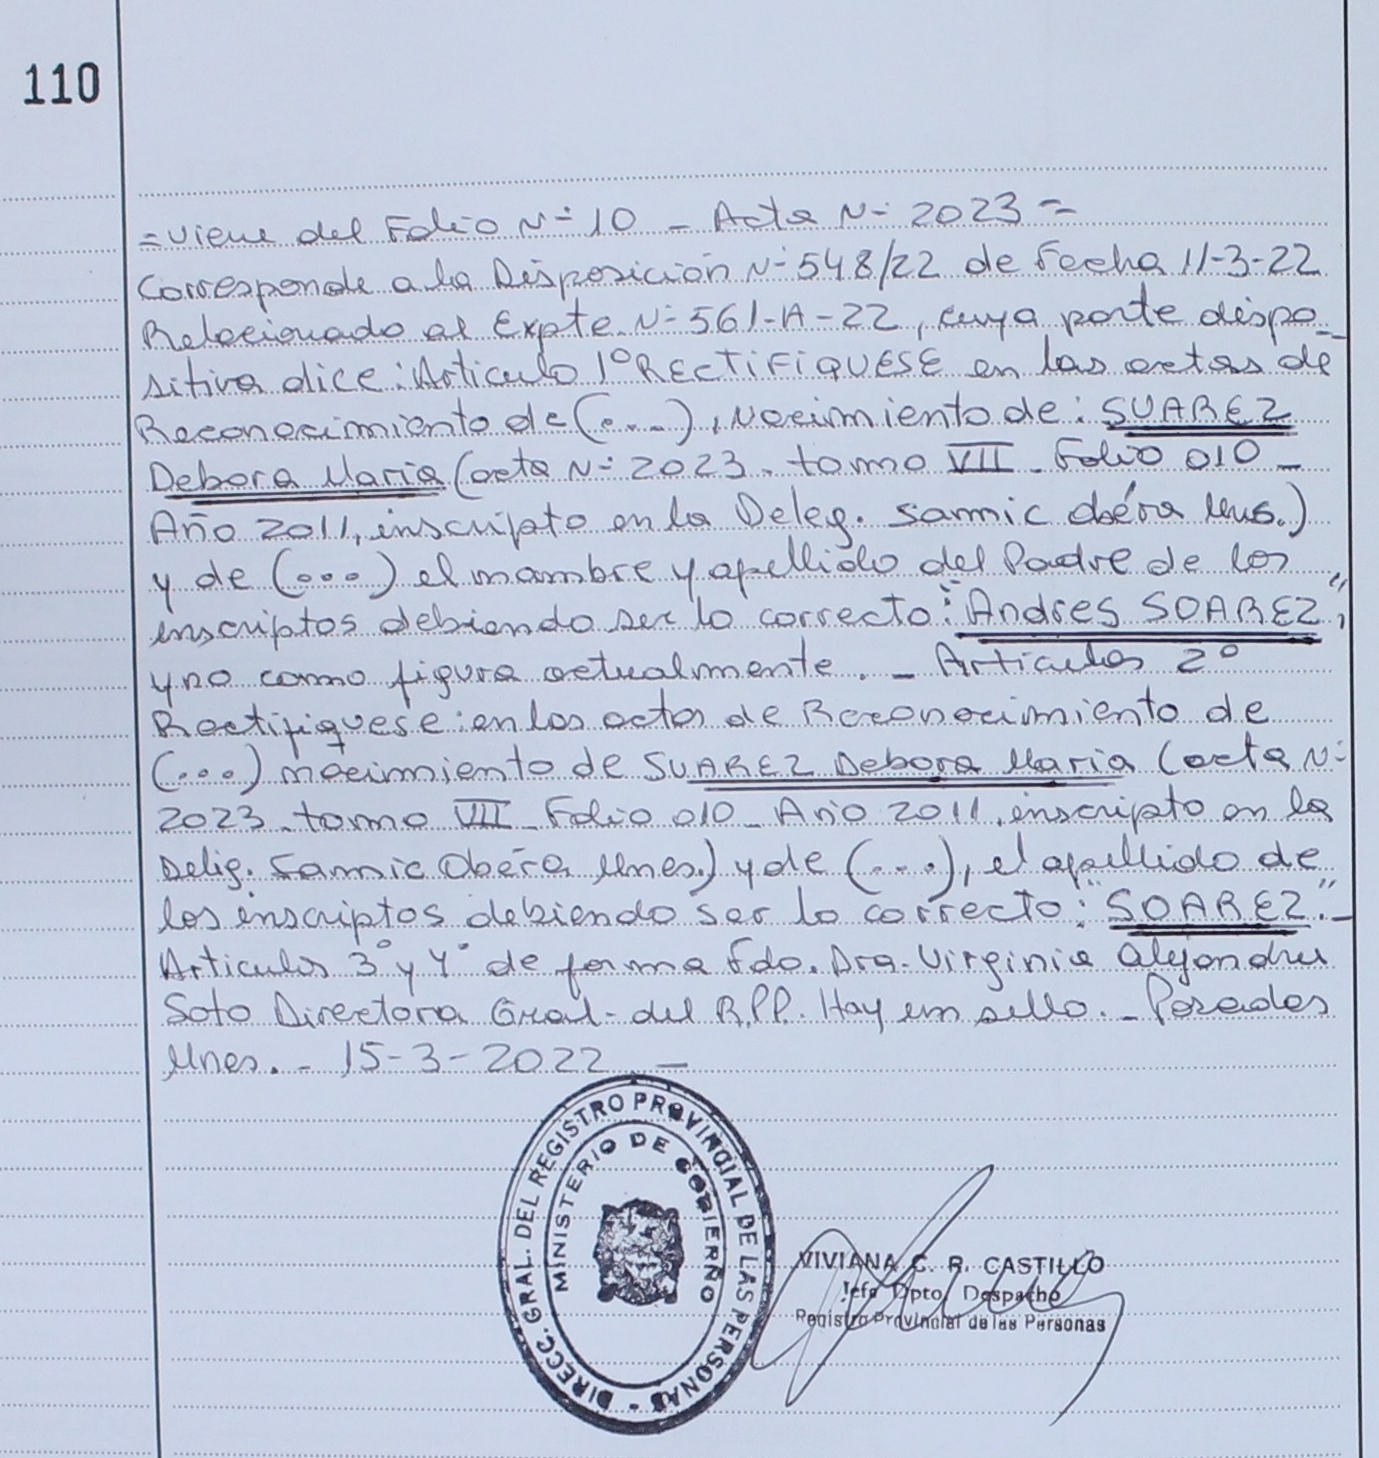 110
= viene del Folio Nº 10 - Acta Nº 2023 =
Corresponde a la Disposición Nº 548/22 de Fecha 11-3-22
Relacionado al Expte. Nº 561-A-22, cuya parte dispo-
sitiva dice: Articulo 1º RECTIFIQUESE en las actas de
Reconocimiento de (...), Nacimiento de: SUAREZ
Debora Maria (acta Nº 2023. tomo VII - Folio 010 -
Año 2011, inscripto en la Deleg. Samic Oberá Mns.)
y de (...) el nombre y apellido del Padre de los
inscriptos debiendo ser lo correcto: "Andres SOAREZ",
y no como figura actualmente. - Articulos 2º
Rectifiquese: en las actas de Reconocimiento de
(...) nacimiento de SUAREZ Debora Maria (acta Nº
2023. tomo VII - Folio 010 - Año 2011, inscripto en la
Delig. Samic Oberá Mnes.) y de (...), el apellido de
los inscriptos debiendo ser lo correcto: "SOAREZ". -
Articulos 3º y 4º de forma Fdo. Dra. Virginia Alejandra
Soto Directora Gral. del R.P.P. Hay un sello. - Posadas
Mnes. - 15-3-2022 -
DIRECC. GRAL. DEL REGISTRO PROVINCIAL DE LAS PERSONAS -
MINISTERIO DE GOBIERNO
VIVIANA C. R. CASTILLO
Jefa Dpto. Despacho
Registro Provincial de las Personas